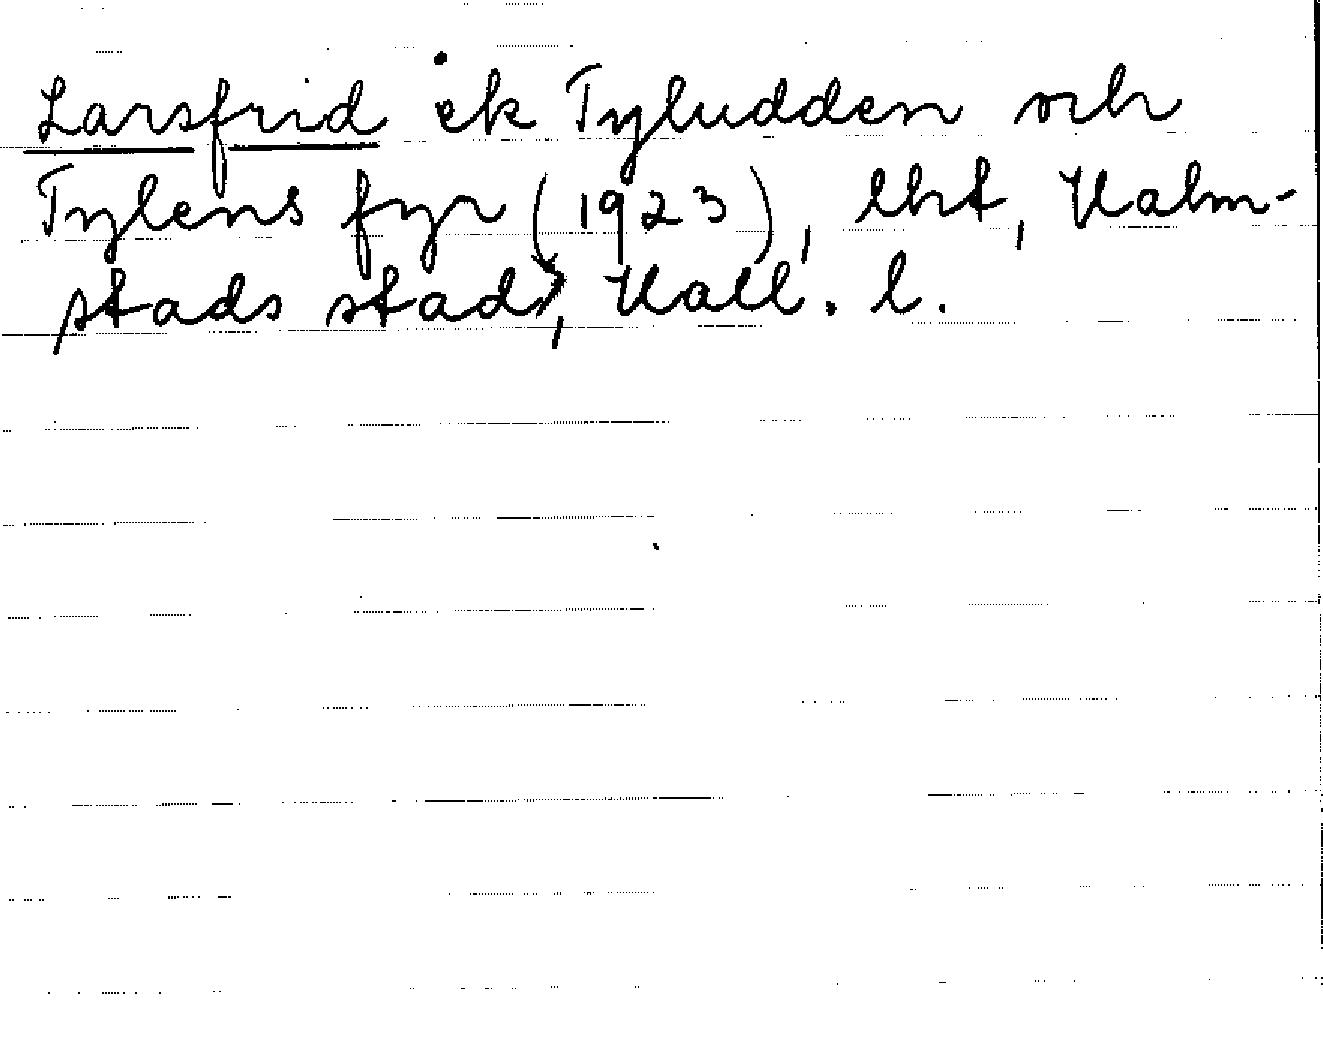 Larsfrid ek Tyludden och
Tylens fyr (1923), lht, Halm-
stads stad, Hall. l.